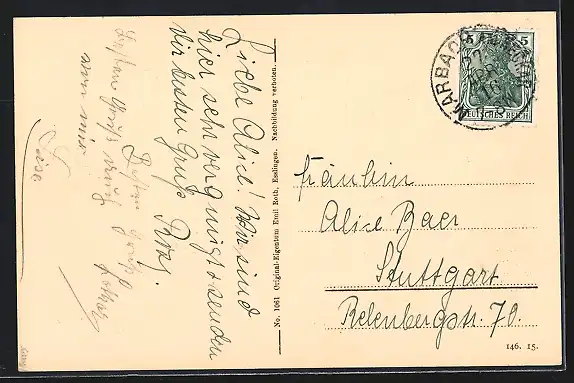 Liebe Alice! Wir sind
hier sehr vergnügt & senden
dir besten Gruß Rosy.
Besten Gruß
von mir
Luise
Besten Gruß
auch
Lothar
No. 1061 Original-Eigentum Emil Roth, Esslingen. Nachbildung verboten.
MARBACH
5 5
DEUTSCHES REICH
Fräulein
Alice Baer
Stuttgart
Relenbergstr. 70.
146. 15.